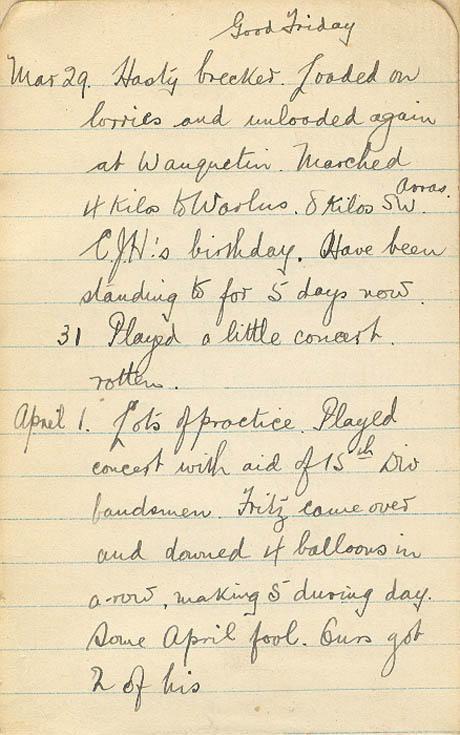 Good Friday
Mar 29. Hasty brecker. Loaded on
lorries and unloaded again
at Wanquetin. Marched
4 Kilos to Warlus. 8 Kilos SW. Arras.
C.J.H.'s birthday. Have been
standing to for 5 days now.
31 Played a little concert.
rotten.
April 1. Lots of practice. Played
concert with aid of 15th Div
bandsmen. Fritz came over
and downed 4 balloons in
a-row, making 5 during day.
Some April fool. Ours got
2 of his